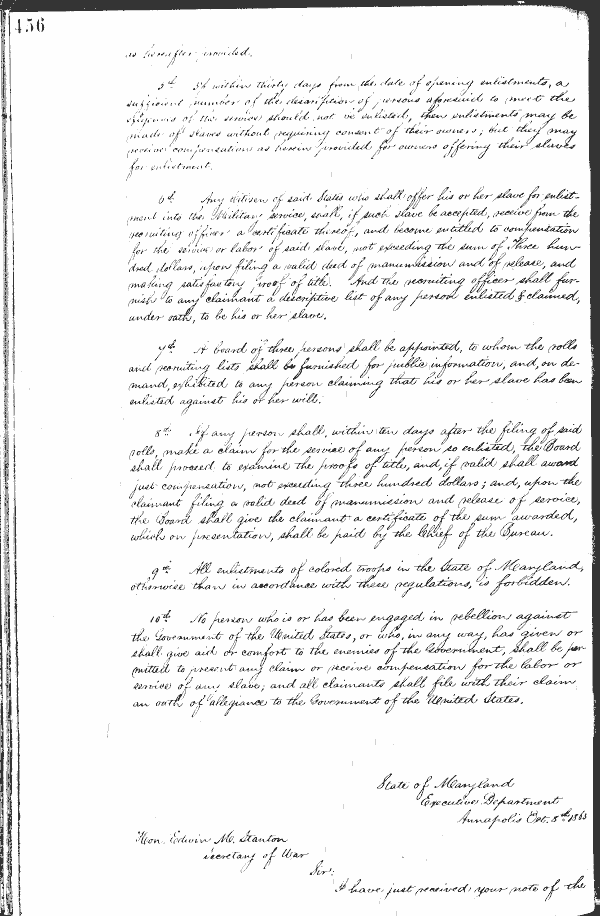 456
as hereafter provided.
5th If within thirty days from the date of opening enlistments, a
sufficient number of the description of persons aforesaid to meet the
exigences of the service should not be enlisted, then enlistments may be
made of slaves without requiring consent of their owners; but they may
receive compensation as herein provided for owners offering their slaves
for enlistment.
6th Any citizen of said States who shall offer his or her slave for enlist-
ment into the Military service, shall, if such slave be accepted, receive from the
recruiting officer a certificate thereof, and become entitled to compensation
for the service or labor of said slave, not exceeding the sum of Three hun-
dred dollars, upon filing a valid deed of manumission and of release, and
making satisfactory proof of title. And the recruiting officer shall fur-
nish to any claimant a descriptive list of any person enlisted & claimed,
under oath, to be his or her slave.
7th A board of three persons shall be appointed, to whom the rolls
and recruiting lists shall be furnished for public information, and, on de-
mand, exhibited to any person claiming that his or her slave has been
enlisted against his or her will.
8th If any person shall, within ten days after the filing of said
rolls, make a claim for the service of any person so enlisted, the Board
shall proceed to examine the proofs of title, and, if valid shall award
just compensation, not exceeding three hundred dollars; and, upon the
claimant filing a valid deed of manumission and release of service,
the Board shall give the claimant a certificate of the sum awarded,
which on presentation, shall be paid by the Chief of the Bureau.
9th All enlistments of colored troops in the State of Maryland,
otherwise than in accordance with these regulations, is forbidden.
10th No person who is or has been engaged in rebellion against
the Government of the United States, or who, in any way, has given or
shall give aid or comfort to the enemies of the Government, shall be per-
mitted to present any claim or receive compensation for the labor or
service of any slave; and all claimants shall file with their claim
an oath of allegiance to the Government of the United States.
State of Maryland
Executive Department
Annapolis Oct. 8th 1863
Hon. Edwin M. Stanton
Secretary of War
Sir:
I have just received your note of the